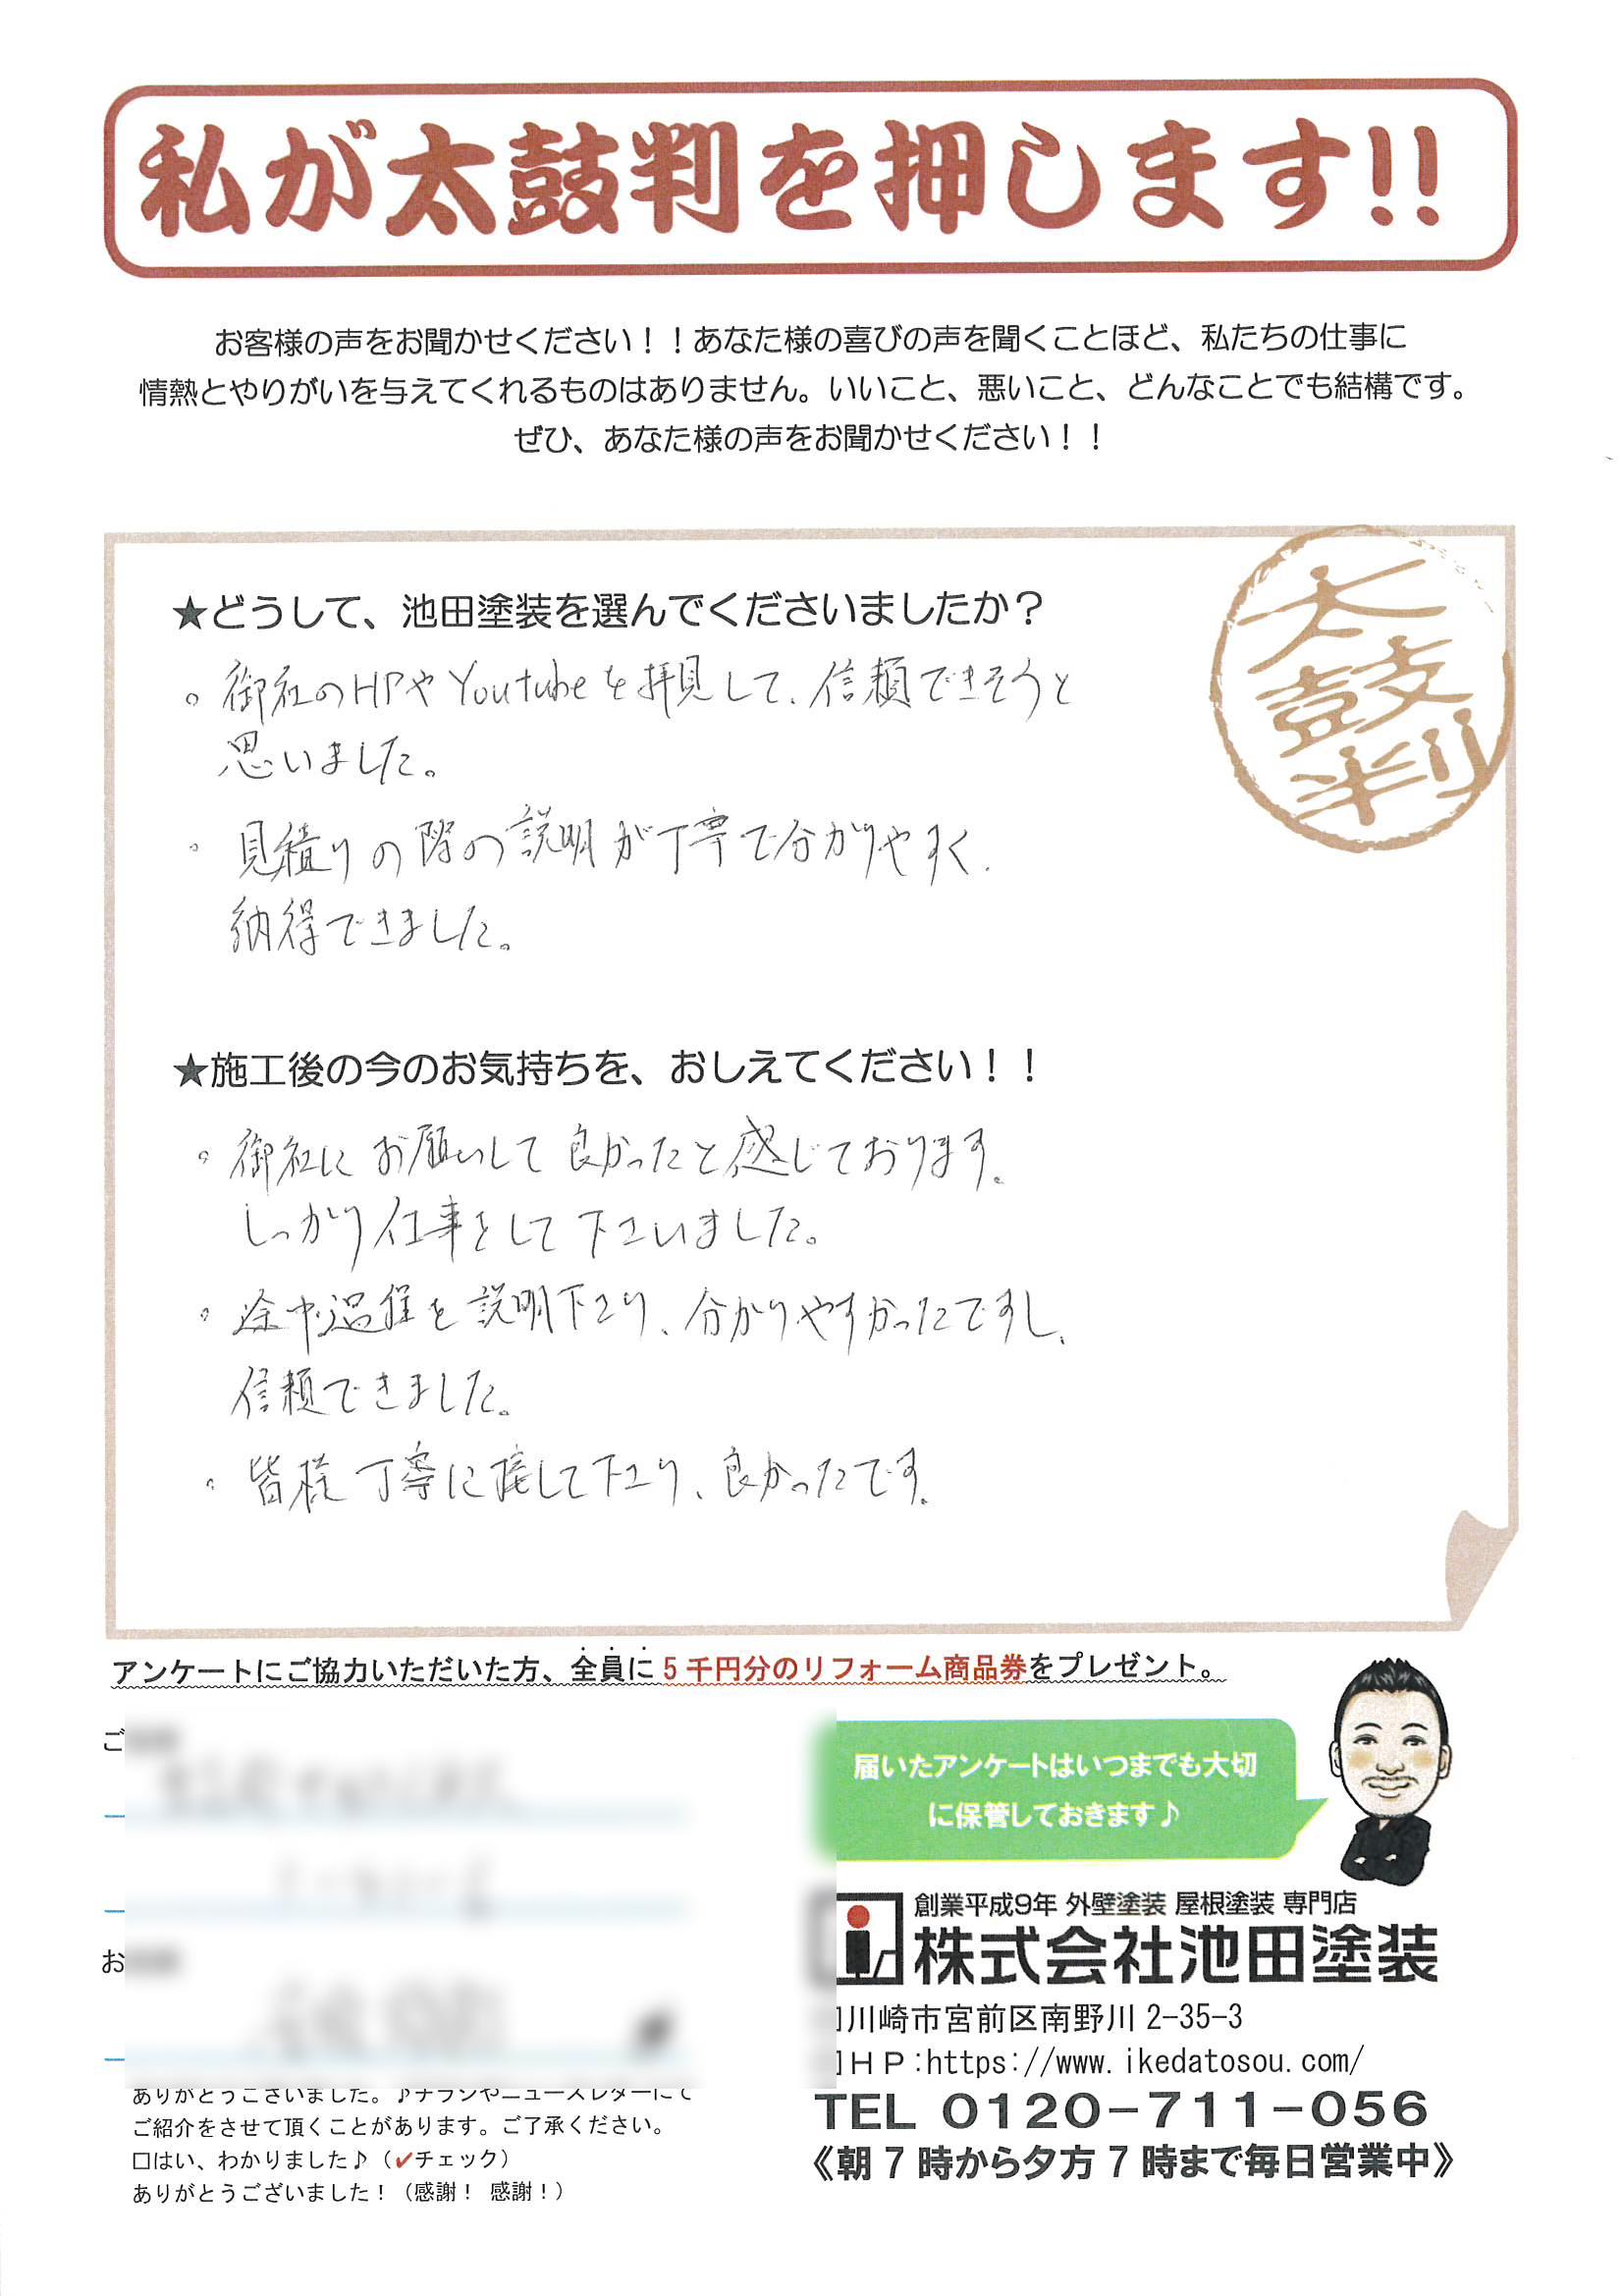 私が太鼓判を押します!!
お客様の声をお聞かせください！！あなた様の喜びの声を聞くことほど、私たちの仕事に
情熱とやりがいを与えてくれるものはありません。いいこと、悪いこと、どんなことでも結構です。
ぜひ、あなた様の声をお聞かせください！！
太鼓判
★どうして、池田塗装を選んでくださいましたか？
。御社のHPやYoutubeを拝見して、信頼できそうと
思いました。
・見積りの際の説明が丁寧で分かりやすく、
納得できました。
★施工後の今のお気持ちを、おしえてください！！
。御社にお願いして良かったと感じております。
しっかり仕事をして下さいました。
。途中過程を説明下さり、分かりやすかったですし、
信頼できました。
。皆様丁寧に接して下さり、良かったです。
アンケートにご協力いただいた方、全員に5千円分のリフォーム商品券をプレゼント。
ご
お
ありがとうございました。♪チラシやニュースレターにて
ご紹介をさせて頂くことがあります。ご了承ください。
□はい、わかりました♪（✓チェック）
ありがとうございました！（感謝！ 感謝！）
届いたアンケートはいつまでも大切
に保管しておきます♪
創業平成9年 外壁塗装 屋根塗装 専門店
株式会社池田塗装
川崎市宮前区南野川2-35-3
ＨＰ:https://www.ikedatosou.com/
TEL 0120-711-056
《朝7時から夕方7時まで毎日営業中》